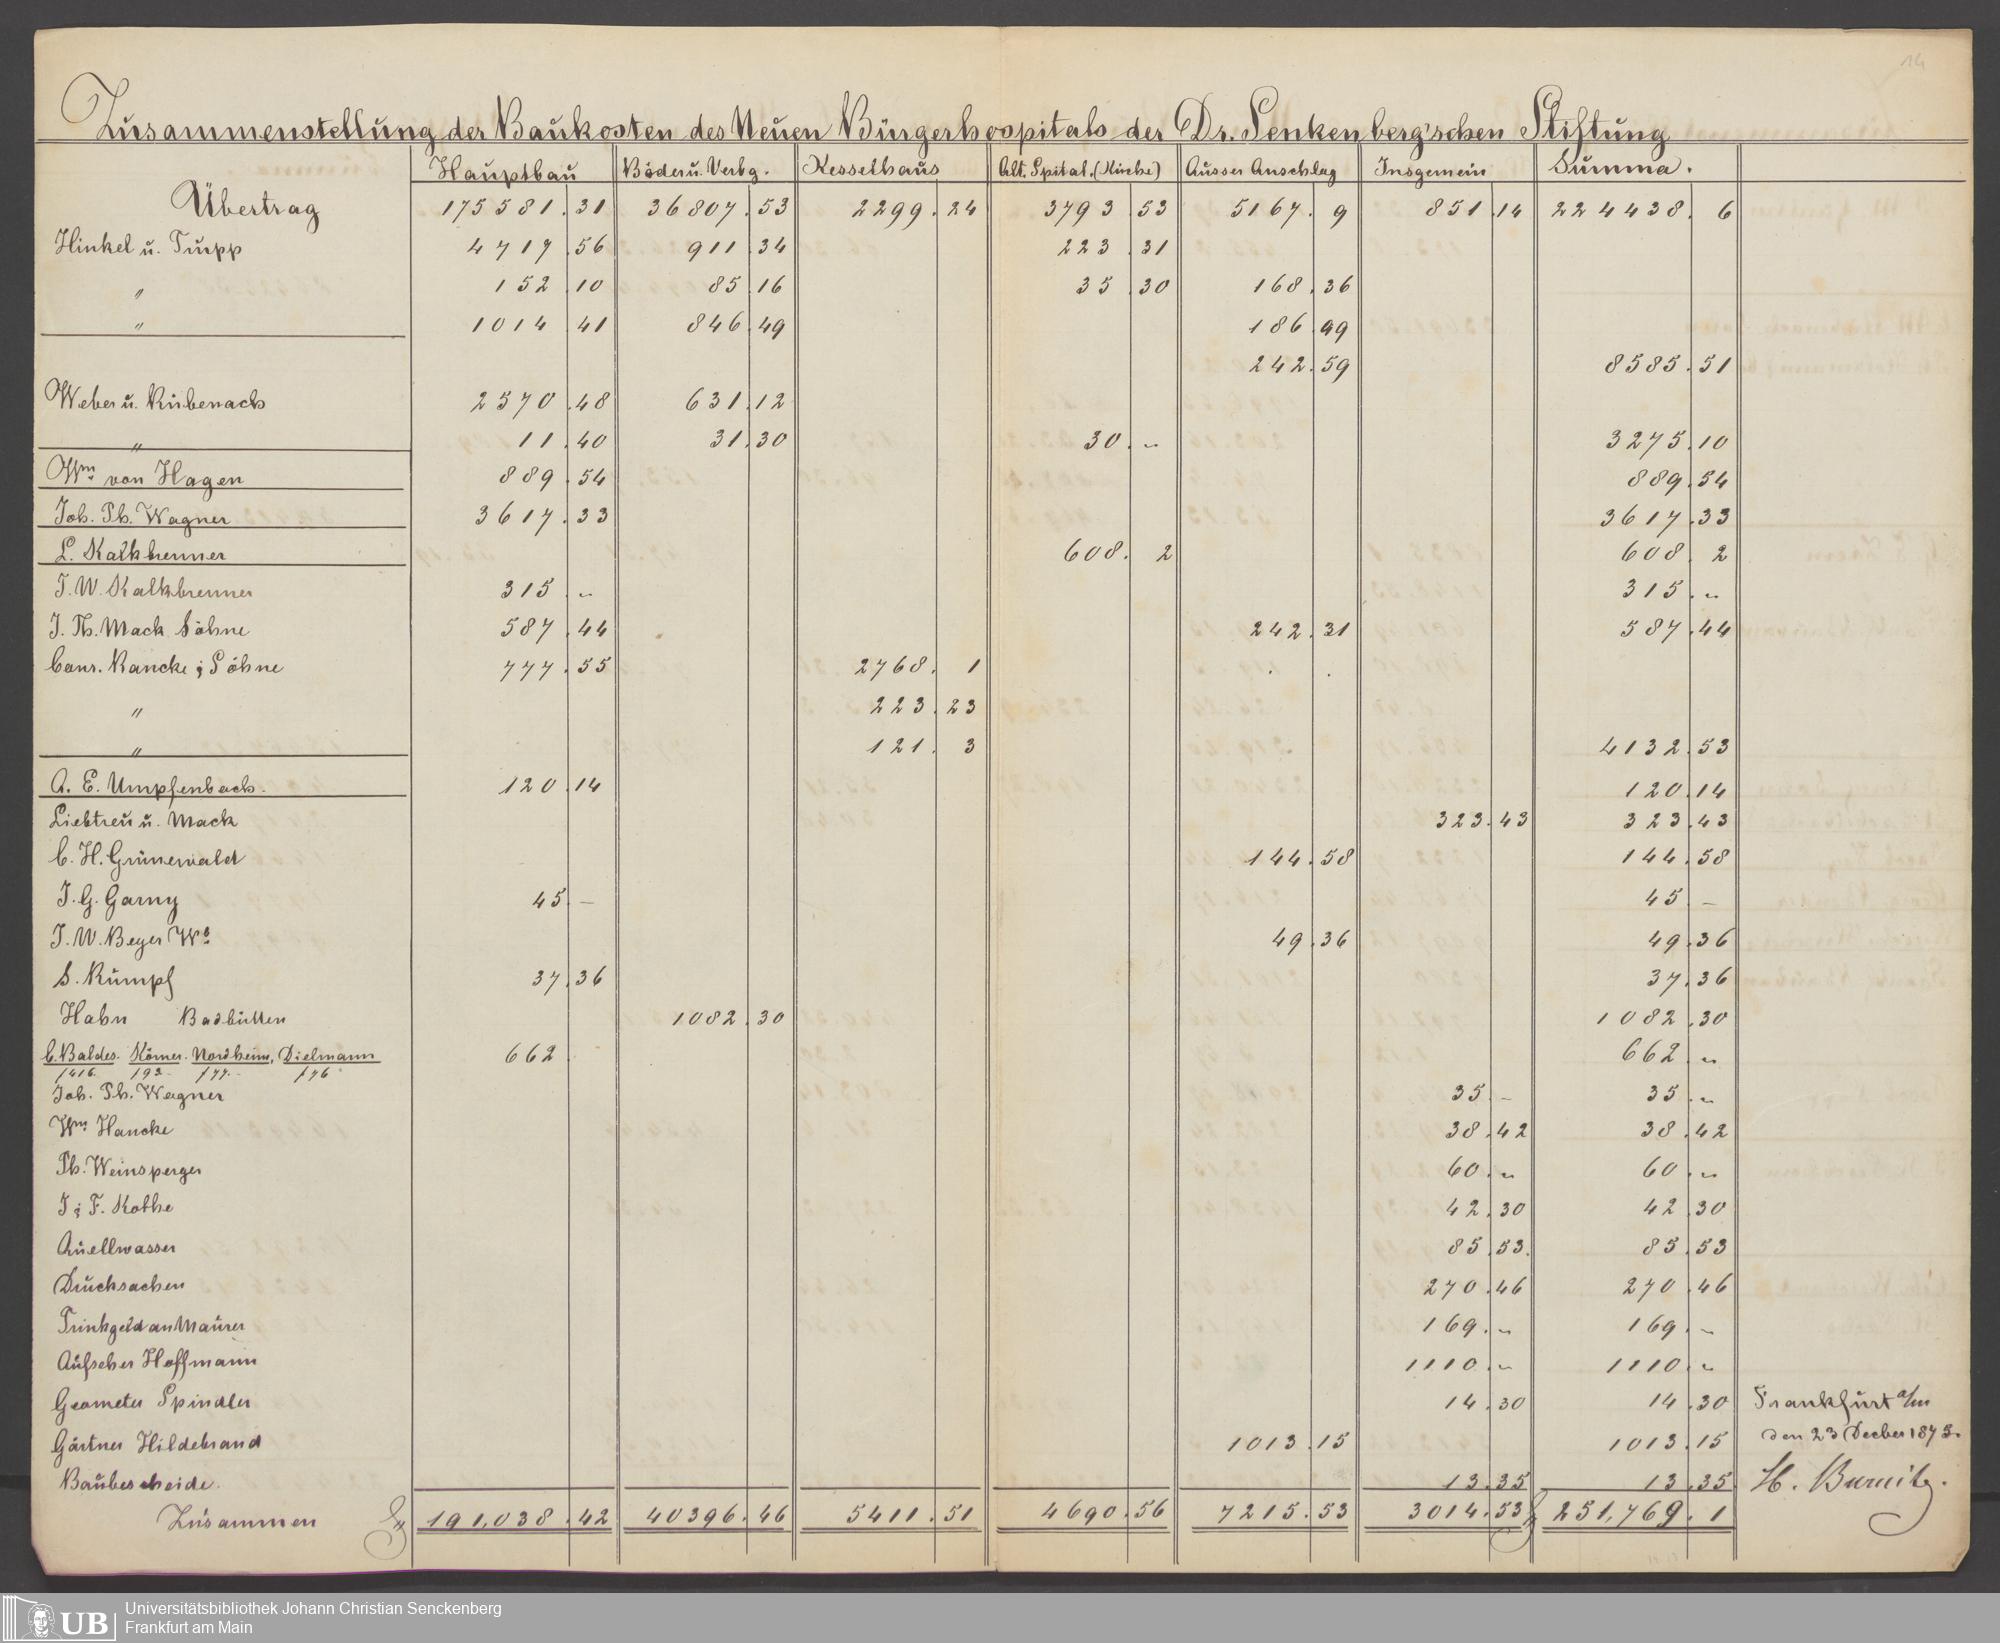 14
Zusammenstellung der Baukosten des Neuen Bürgerhospitals der Dr. Senkenberg'schen Stiftung
Hauptbau Bäder u. Verbg. Kesselhaus Alt. Spital. (Kirche) Ausser Anschlag Insgemein Summa.
Übertrag 175581.31 36807.53 2299.24 3793.53 5167.9 851.14 224438.6
Hinkel u. Trupp 4717.56 911.34 223.31
" 152.10 85.16 35.30 168.36
" 1014.41 846.49 186.49
242.59 8585.51
Weber u. Rübenach 2570.48 631.12
" 11.40 31.30 30.„ 3275.10
Wm. von Hagen 889.54 889.54
Joh. Ph. Wagner 3617.33 3617.33
L. Kalkbrenner 608.2 608.2
J. W. Kalkbrenner 315.„ 315.„
J. Th. Mack Söhne 587.44 242.31 587.44
Conr. Rancke & Söhne 777.55 2768.1
" 223.23
" 121.3 4132.53
A. E. Umpfenbach. 120.14 120.14
Liebtreu u. Mack 323.43 323.43
C. H. Grünewald 144.58 144.58
J. G. Garny 45.– 45.–
J. W. Beyer We 49.36 49.36
S. Rumpf 37.36 37.36
Hahn Badbütten 1082.30 1082.30
C. Baldes. Körner. Nordheim, Dielmann 662. 662.„
f416. 193– f77.– f76
Joh. Ph. Wagner 35.– 35.„
Wm Hancke 38.42 38.42
Ph. Weinsperger 60.„ 60.„
J & F. Kothe 42.30 42.30
Quellwasser 85.53. 85.53
Drucksachen 270.46 270.46
Trinkgeld an Maurer 169.„ 169.„
Aufseher Hoffmann 1110.„ 1110.„
Geometer Spindler 14.30 14.30 Frankfurt a/m
Gärtner Hildebrand 1013.15 1013.15 den 23 Decber 1873.
Baubescheide. 13.35 13.35 H. Burnitz.
Zusammen 191,038.42 40396.46 5411.51 4690.56 7215.53 3014.53 251,769.1
UB
Universitätsbibliothek Johann Christian Senckenberg
Frankfurt am Main